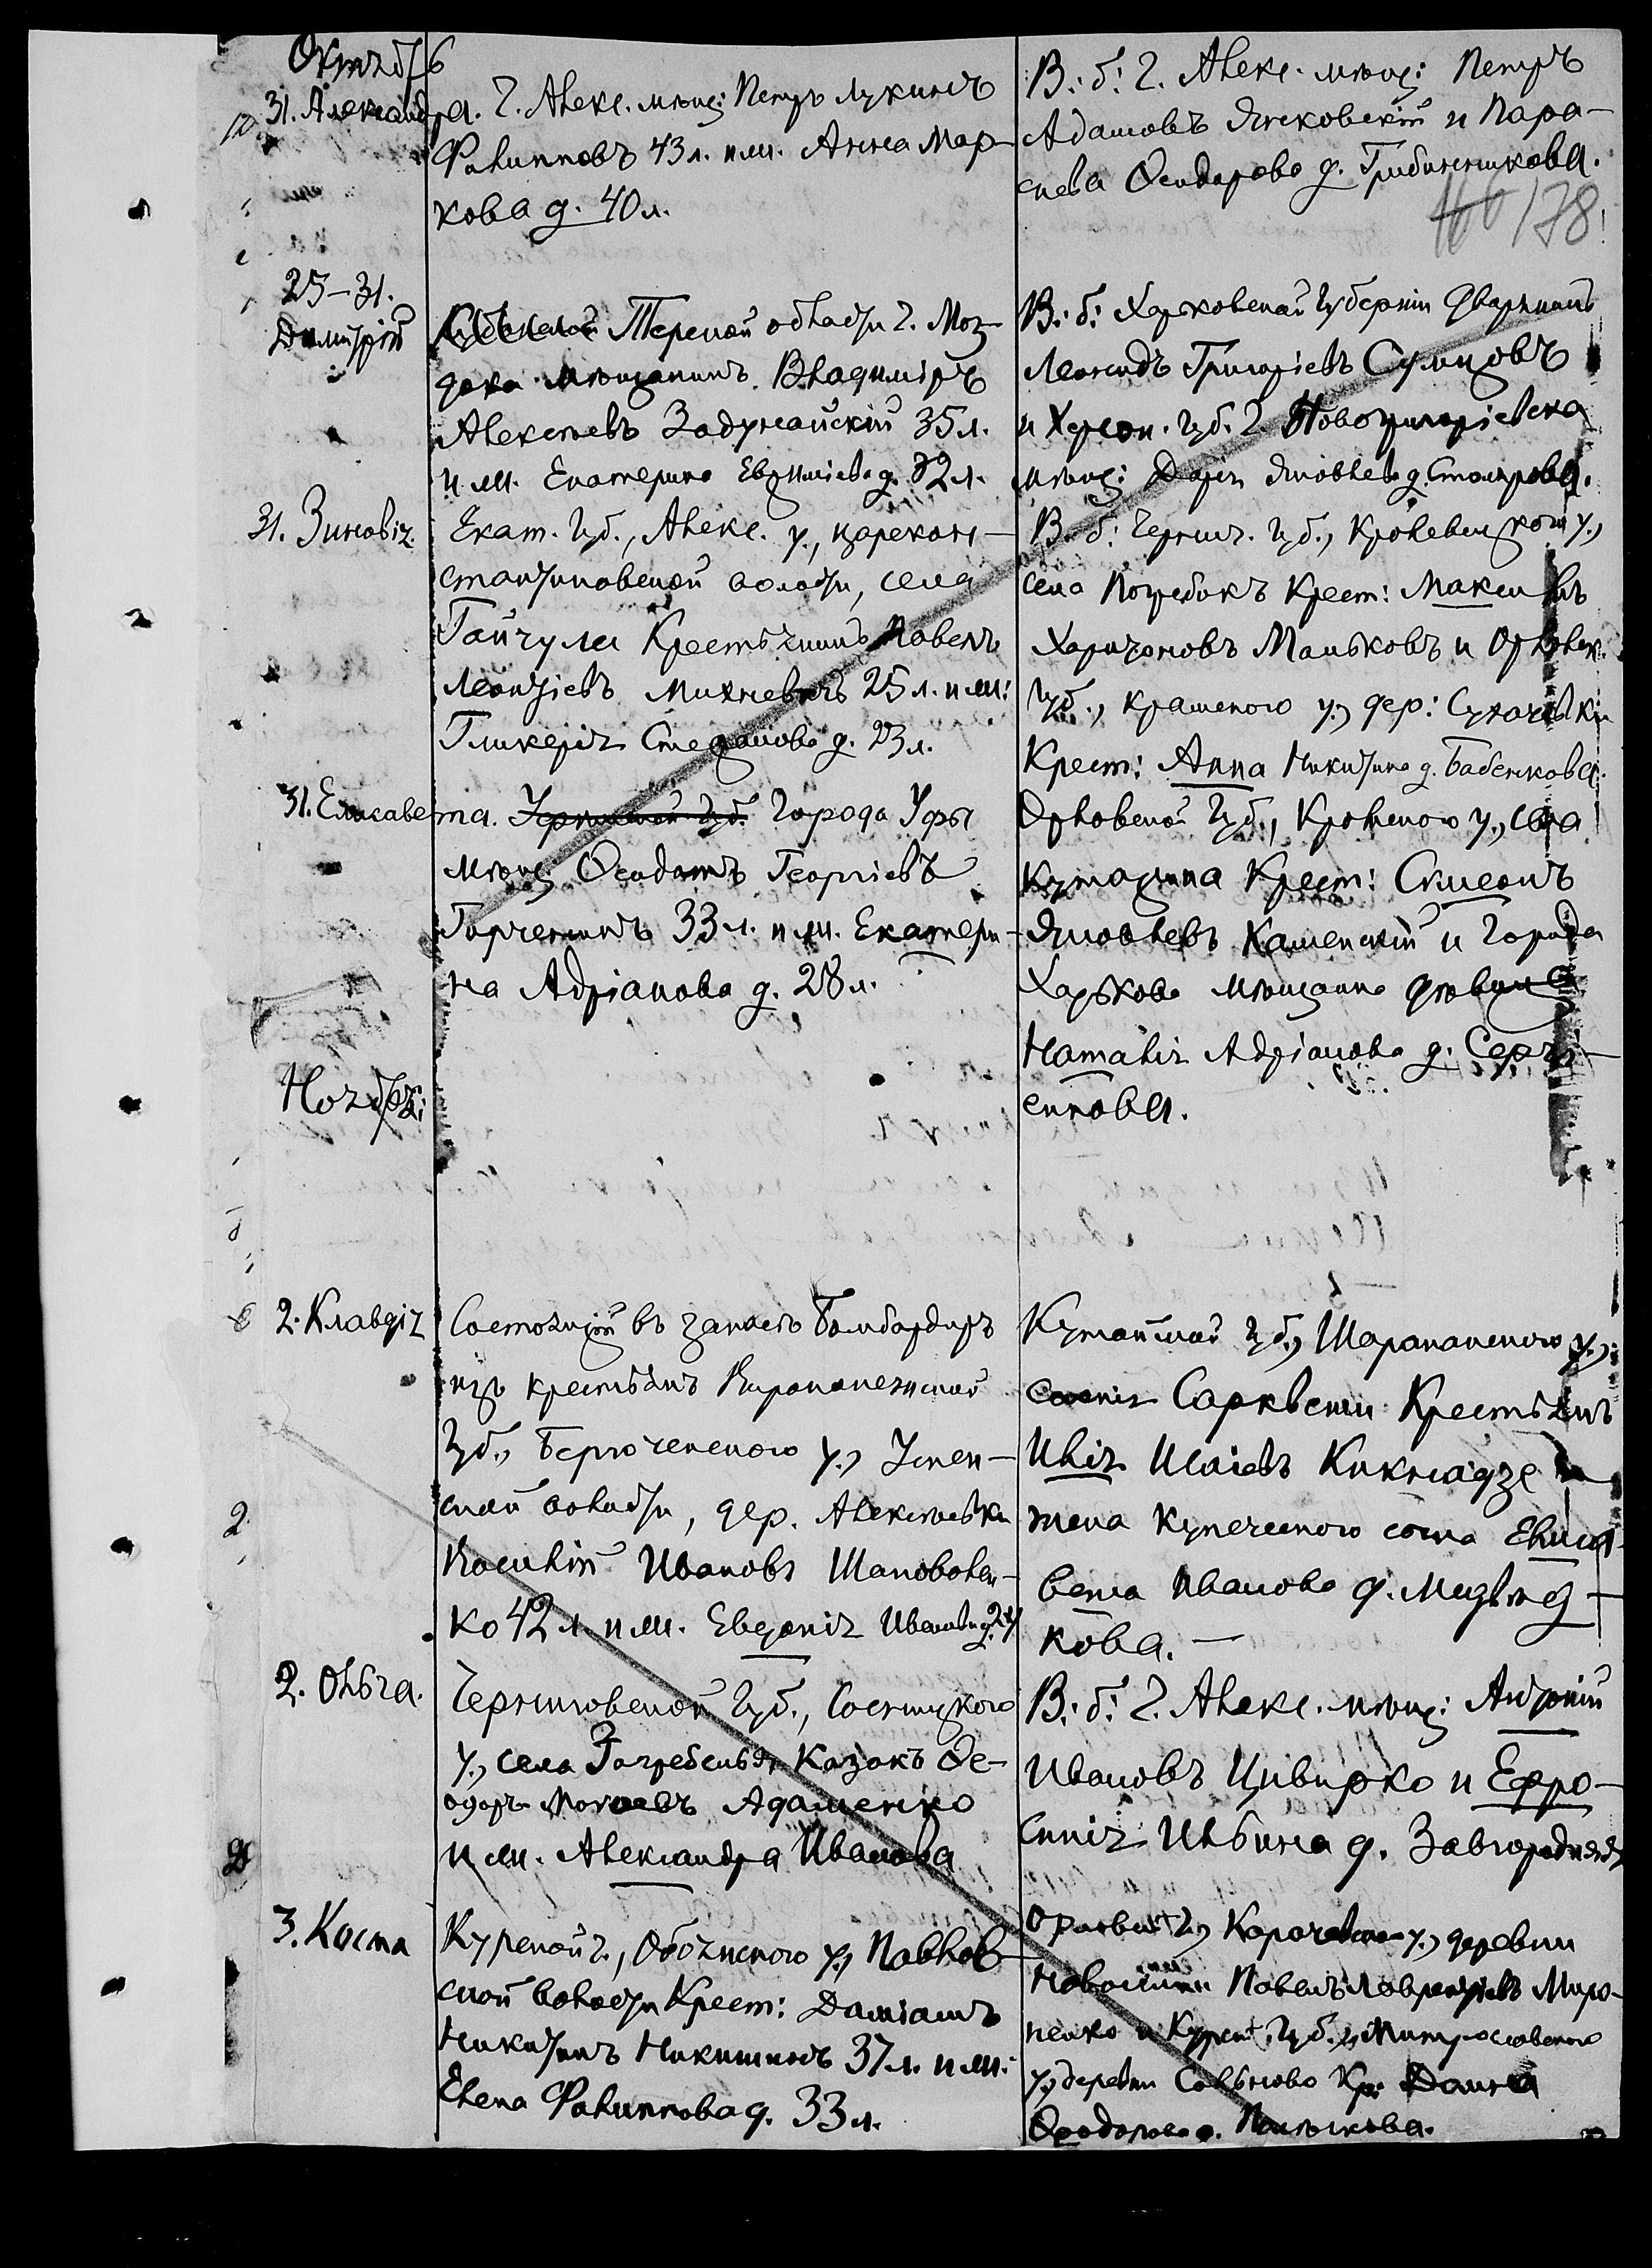 Октяб.
31. Александра. Г. Алекс. мѣщ: Петръ Лукинъ
Филипповъ 43 л. и ж. Анна Мар-
кова д. 40 л.
В. б: Г. Алекс. мѣщ: Петръ
Адамовъ Янковскій и Пара-
скева Ѳеодорова д. Грибинникова.
178
25–31.
Димитрій
Терской области г. Моз-
дока мѣщанинъ Владиміръ
Алексѣевъ Задунайскій 35 л.
и ж. Екатерина Евѳиміева д. 32 л.
В. б: Харьковской губерніи Дворянинъ
Леонидъ Григорьевъ Сумцовъ
и Херсон. губ. г. Новогригорьевска
мѣщ: Дарія Яковлева д. Столярова.
31. Зиновія.
Екат. губ., Алекс. у., Царекон-
стантиновской волости, села
Гайчула Крестьянинъ Павелъ
Леонтіевъ Михневичъ 25 л. и ж:
Гликерія Стефанова д. 23 л.
В. б: Чернит. губ., Кролевецкого у.,
села Погребокъ Крест: Максимъ
Харитоновъ Маньковъ и Орловск.
губ., Крамского у., дер: Сухачевки
Крест: Анна Никитина д. Бабенкова.
31. Елисавета. Города Уфы
мѣщ. Ѳеодотъ Георгіевъ
Горченинъ 33 л. и ж. Екатери-
на Адріанова д. 28 л.
Орловской губ., Кромского у., села
Крест: Симеонъ
Яковлевъ Каменскій и города
Харькова мѣщанка дѣвица
Наталія Адріанова д. Серги-
енкова.
Ноябрь
2. Клавдія
Состоящій въ запасѣ Бомбардиръ
изъ крестьянъ Воронежской
губ., Бирюченского у., Успен-
ской волости, дер. Алексѣевки
Василій Ивановъ Шаповален-
ко 42 л. и ж. Евгенія Иванова д.
Кутаисской губ., Шорапанского у.,
селенія Сарквени Крестьянинъ
Илія Исаіевъ Кикнадзе
жена купеческого сына Елиса-
вета Иванова д. Мизвѣд-
кова. –
2. Ольга.
Черниговской губ., Сосницкого
у., села Загребелья, Казакъ Ѳе-
одоръ Адаменко
и ж. Александра Иванова
В. б: Г. Алекс. мѣщ: Андрей
Ивановъ Цивирко и Ефро-
синія Ильина д. Завгородняя
3. Косма
Курской г., Обоянского у., Павлов-
ской волости Крест: Даміанъ
Никитинъ Никишинъ 37 л. и ж:
Елена Филиппова д. 33 л.
Орловской г., Карачевского у., деревни
Павелъ Лаврентіевъ Миро-
ненко и Курск. губ.
у., деревни Кр.
Ѳеодорова д.